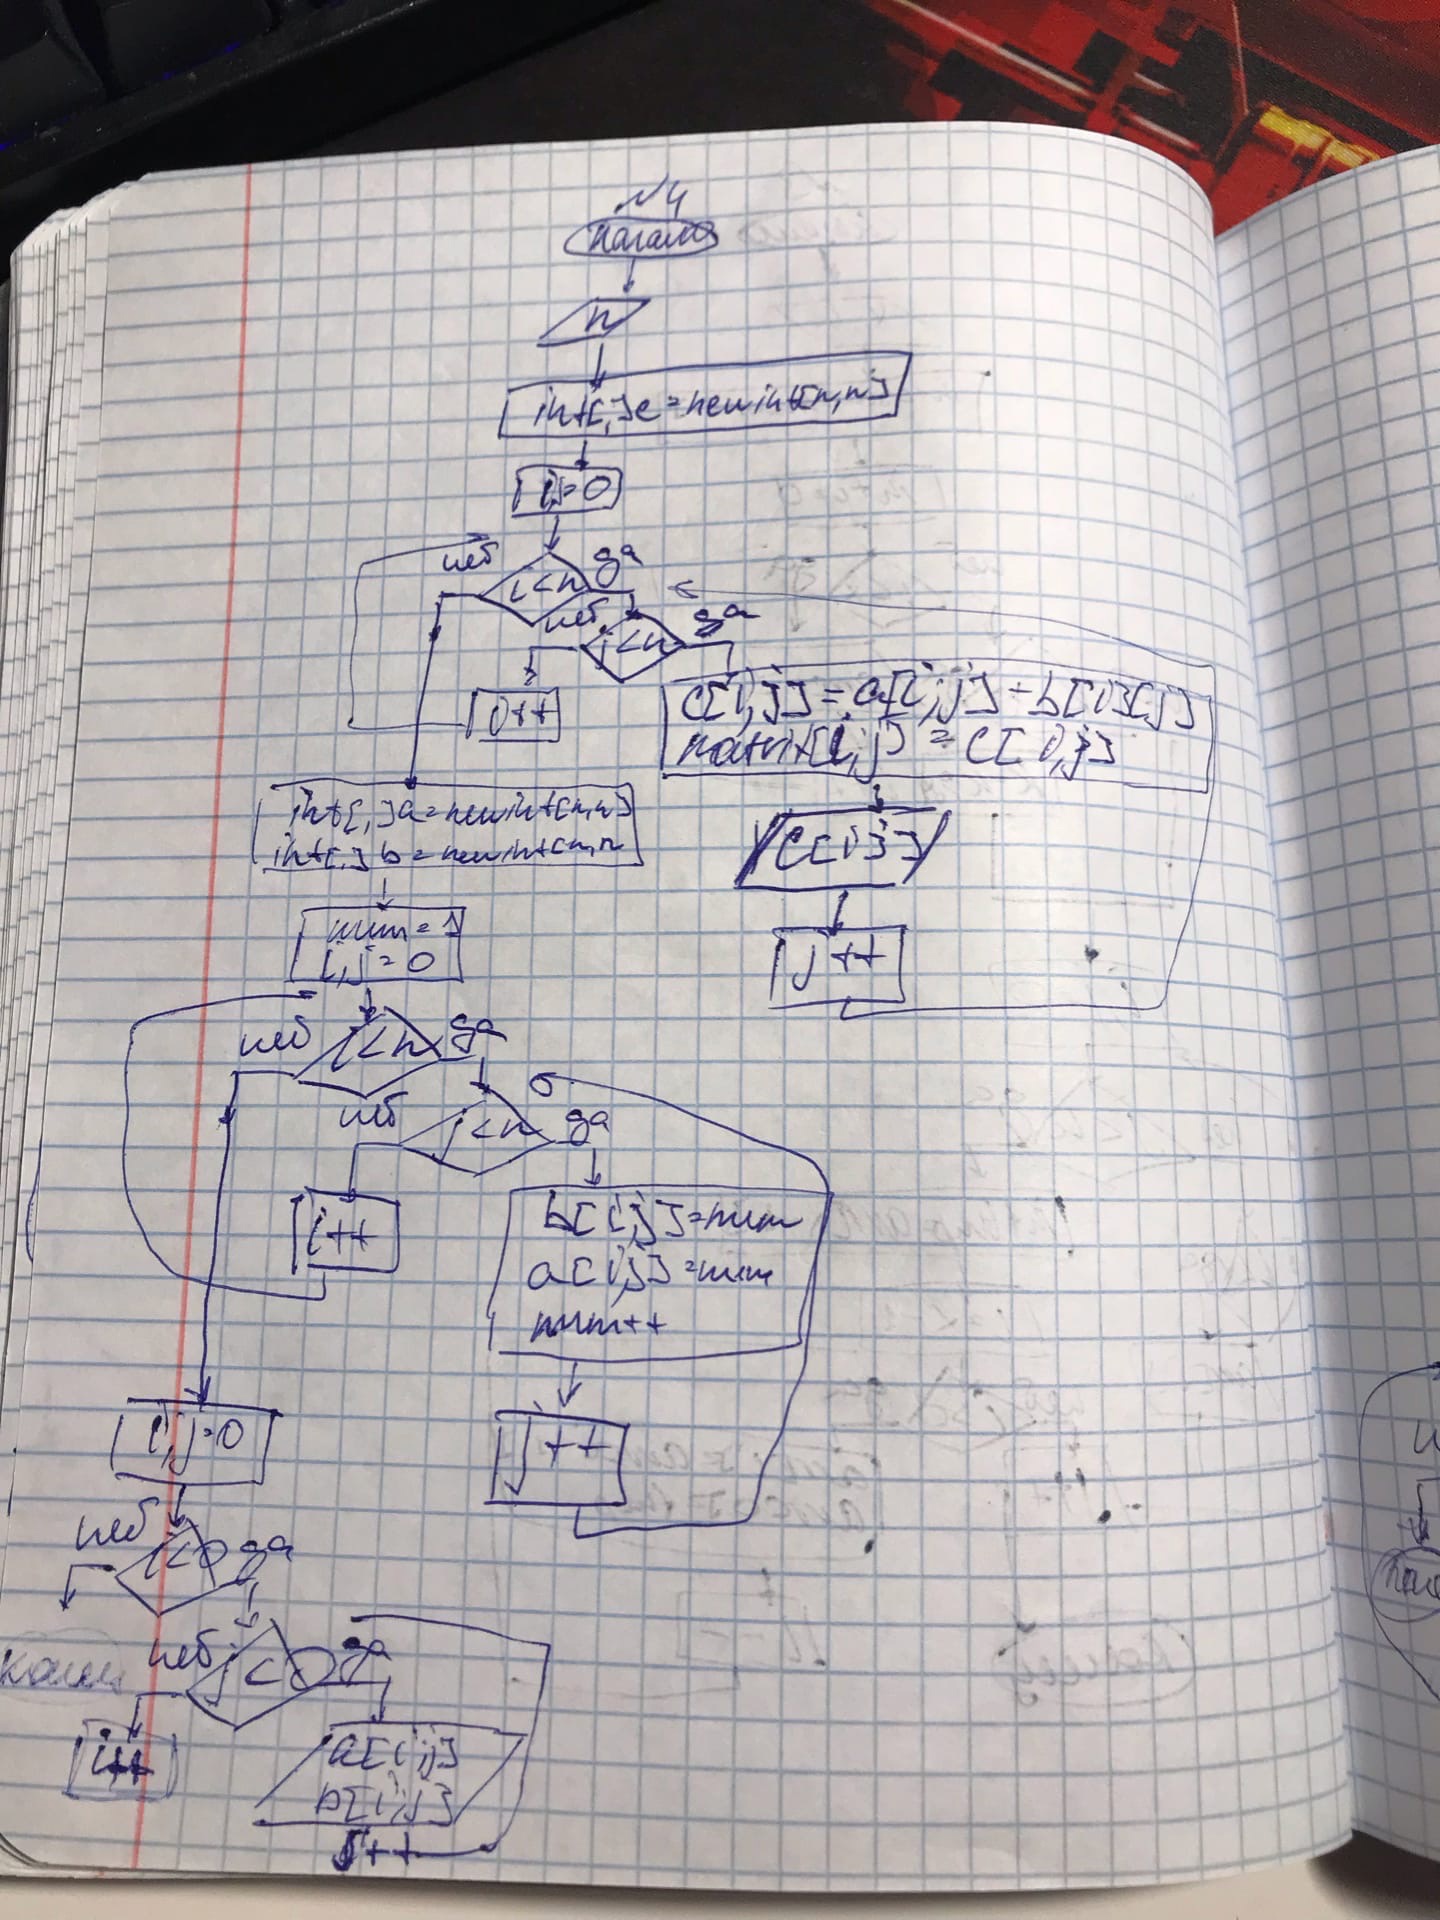 №4
начало
n
int[,]c=newint[n,n]
i,j=0
нет
i<n
да
нет
j<n
да
i++
c[i,j]=a[i,j]+b[i][j]
matrix[i,j]=c[i,j]
c[i,j]
j++
int[,]a=newint[n,n]
int[,]b=newint[n,n
num=1
i,j=0
нет
i<n
да
нет
j<n
да
i++
b[i,j]=num
a[i,j]=num
num++
j++
i,j=0
нет
i<0
да
нет
j<0
да
i++
a[i,j]
b[i,j]
j++
конец